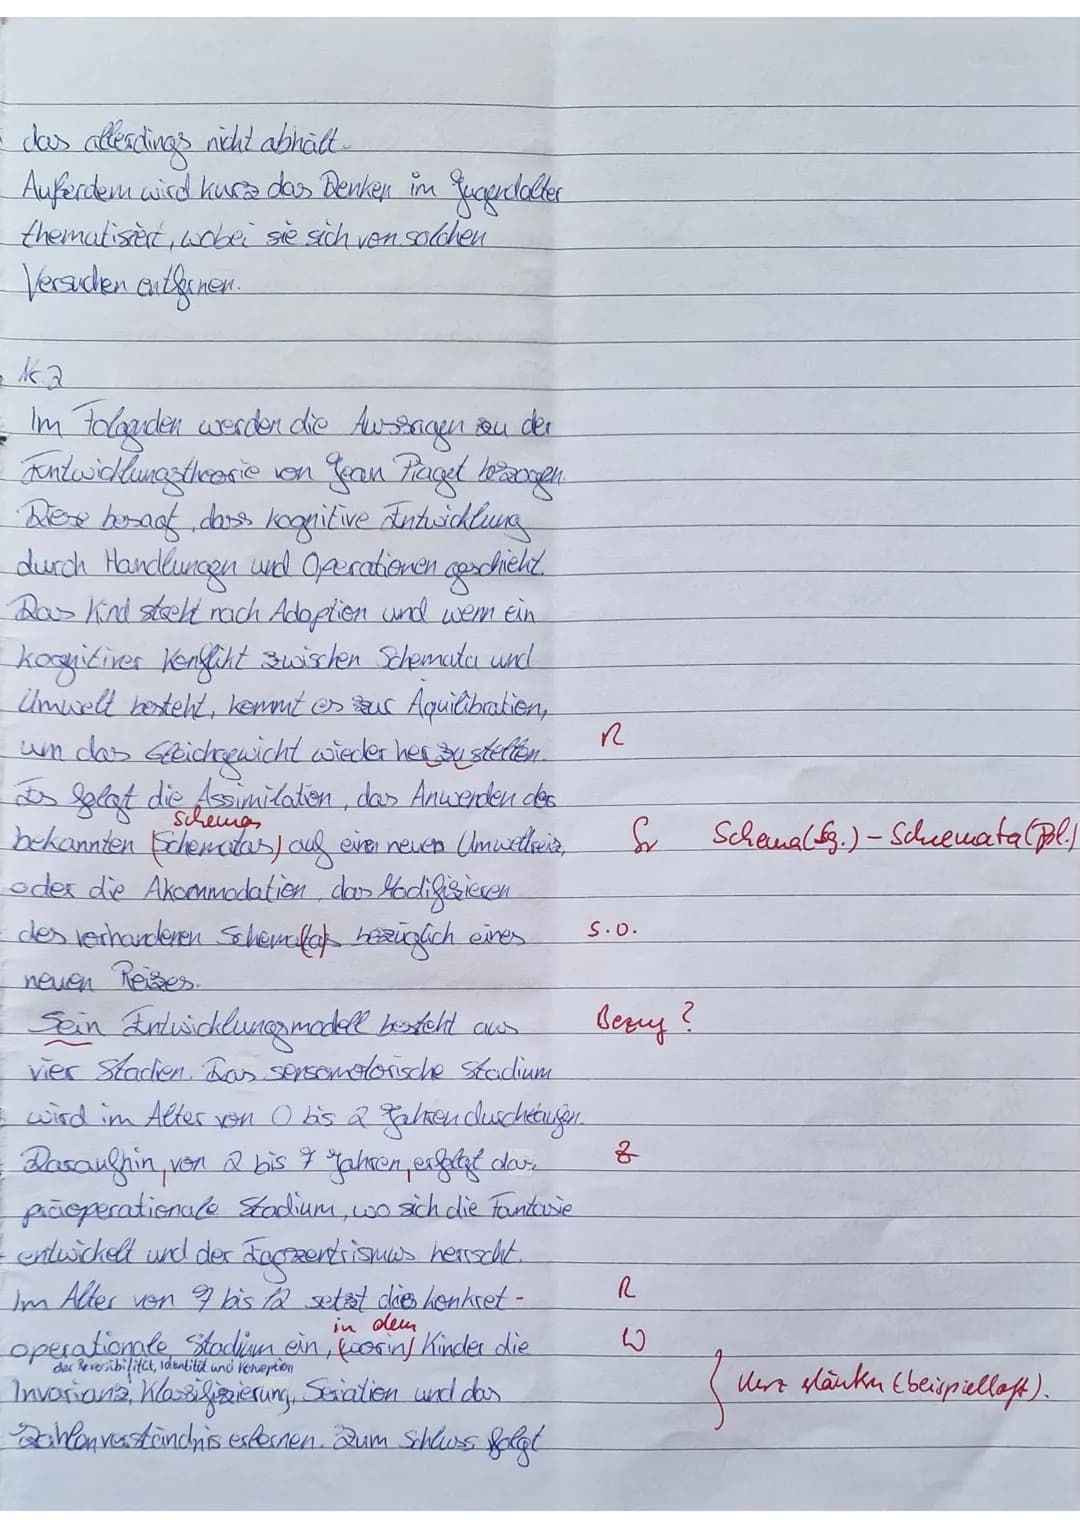 das allerdings nicht abhält.
Außerdem wird kurz das Denken im Jugendalter
thematisiert, wobei sie sich von solchen
Versuchen entfernen.
Nr. 2
Im Folgenden werden die Aussagen zu der
Entwicklungstheorie von Jean Piaget bezogen.
Diese besagt, dass kognitive Entwicklung
durch Handlungen und Operationen geschieht.
Das Kind strebt nach Adaption und wenn ein
kognitiver Konflikt zwischen Schemata und
Umwelt besteht, kommt es zur Äquilibration,
um das Gleichgewicht wieder her zu stellen. R
Es folgt die Assimilation, das Anwenden des
Schemas
bekannten (Schematas) auf einen neuen Umweltreiz, Gr Schema (Sg.) - Schemata (Pl.)
oder die Akommodation, das Modifizieren
des vorhandenen Schema(ta)s bezüglich eines s.o.
neuen Reizes.
Sein Entwicklungsmodell besteht aus Bezug?
vier Stadien. Das sensomotorische Stadium
wird im Alter von 0 bis 2 Jahren durchlaufen.
Daraufhin, von 2 bis 7 Jahren, erfolgt das Z
präoperationale Stadium, wo sich die Fantasie
entwickelt und der Egozentrismus herrscht.
Im Alter von 7 bis 12 setzt das konkret- R
in dem
operationale Stadium ein, (worin) Kinder die W
der Reversibilität, Identität und
Invarianz, Klassifizierung, Seriation und das kurz erläutern (beispielhaft).
Zahlenverständnis erlernen. Zum Schluss folgt